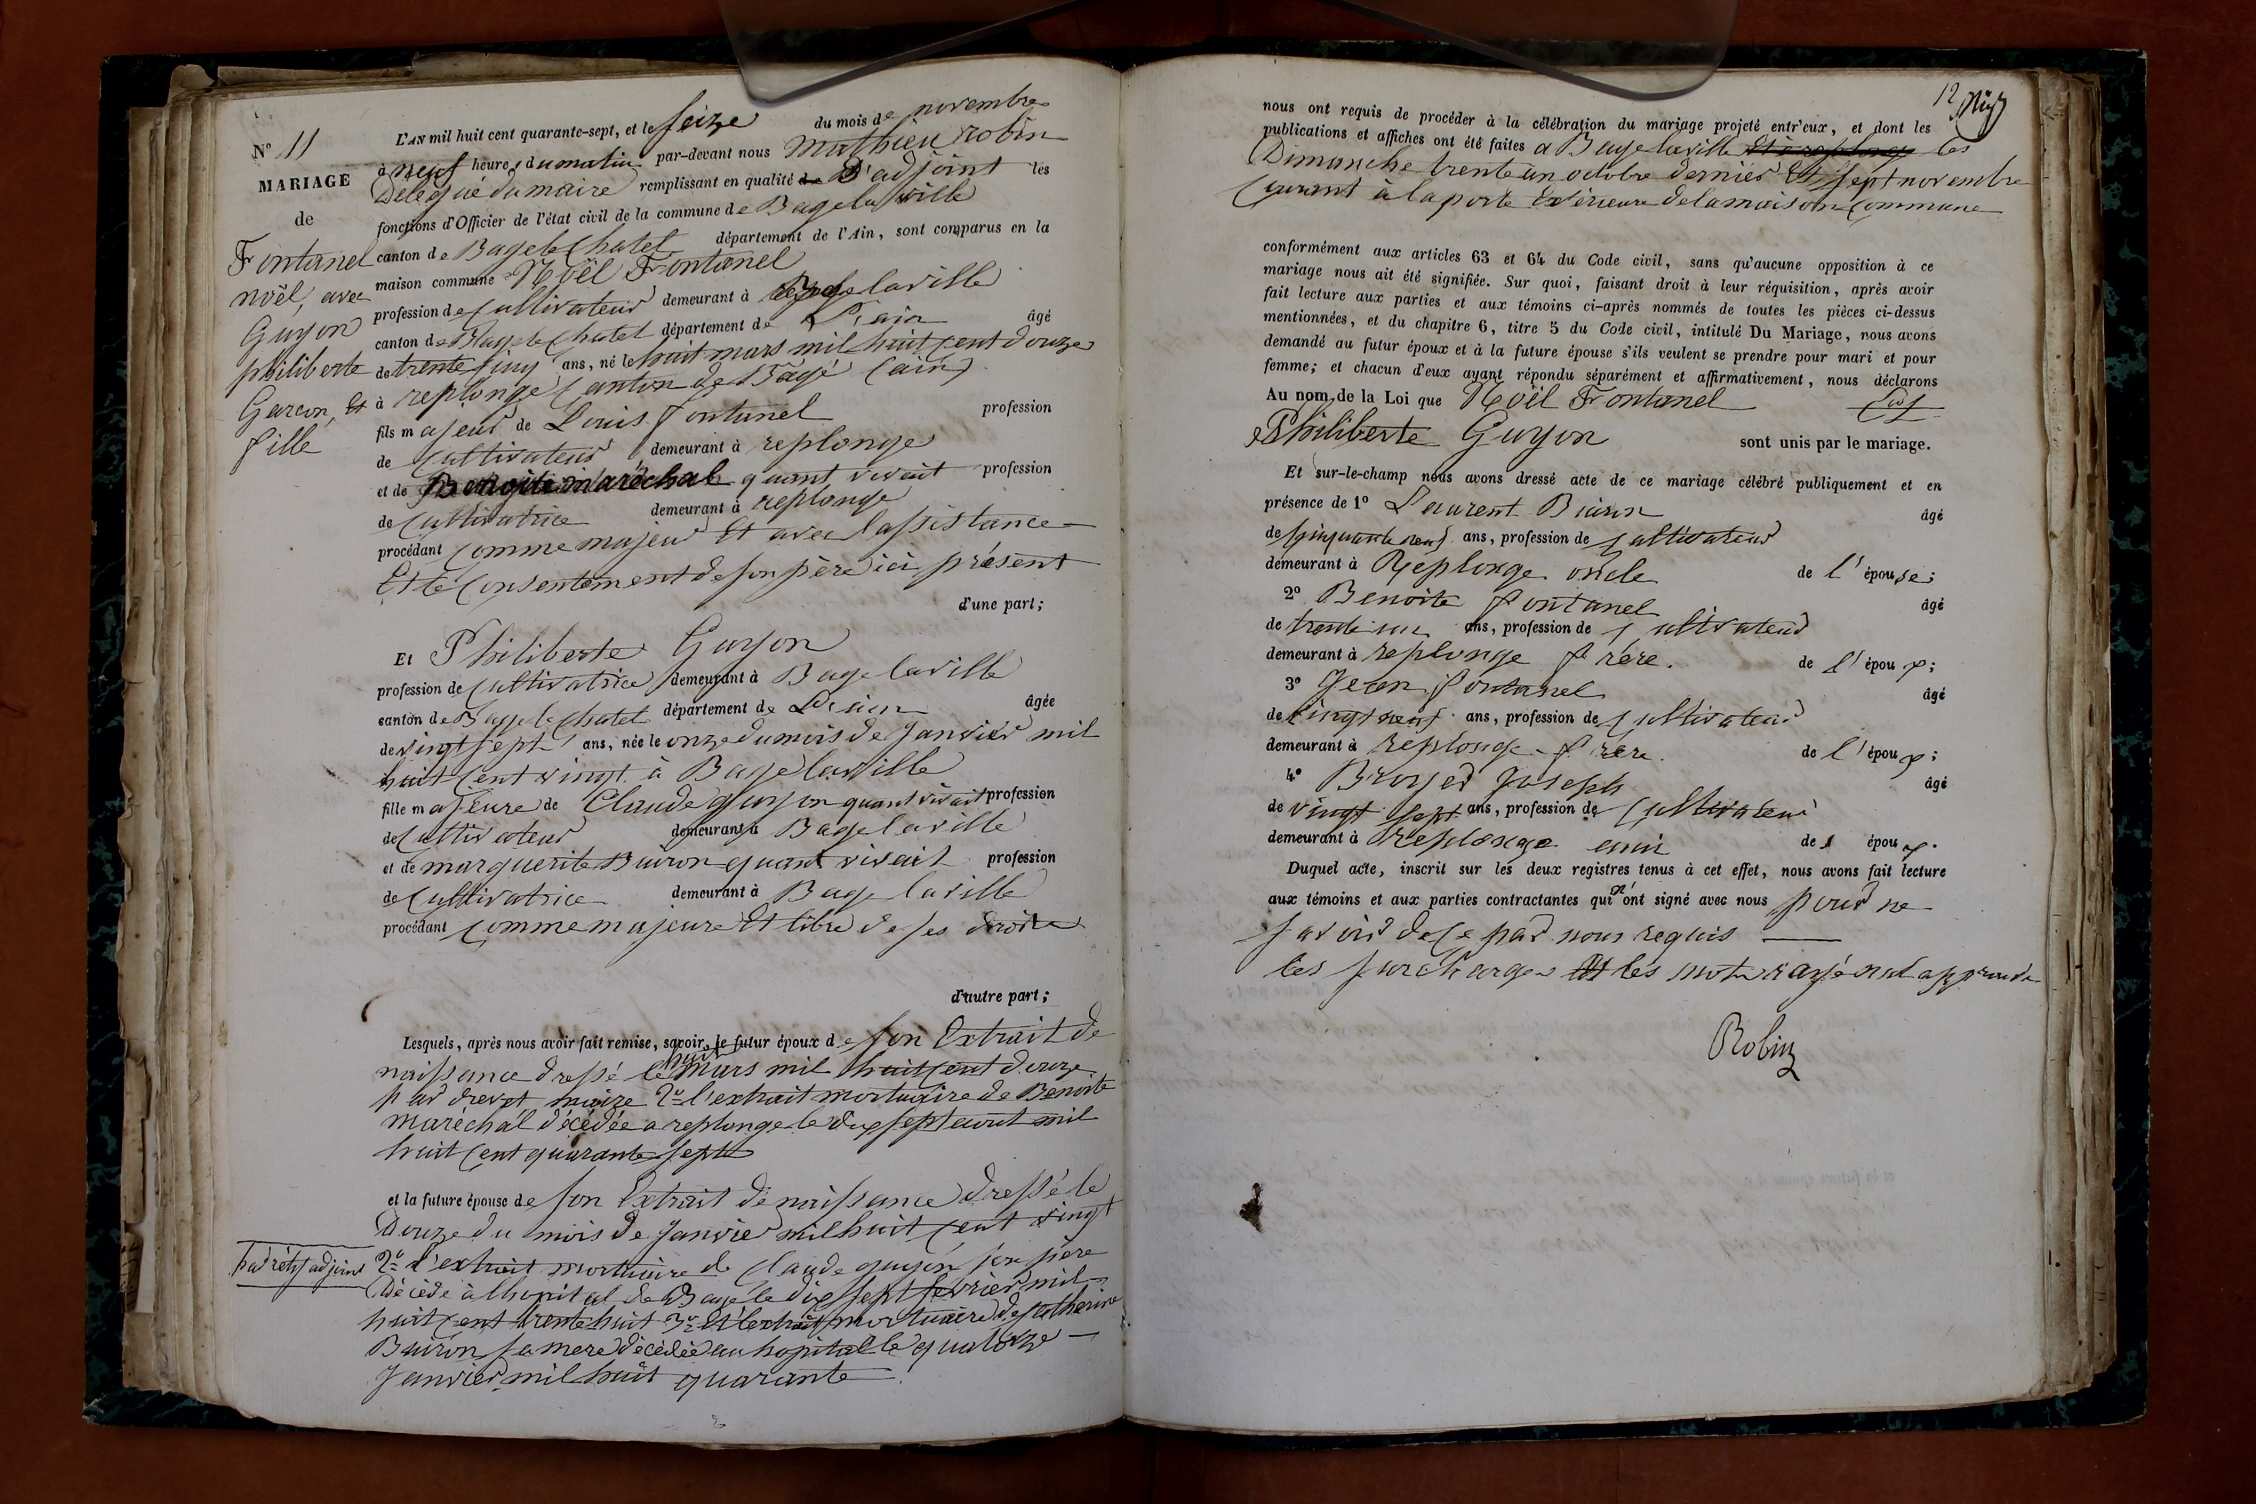 N° 11
MARIAGE
de
Fontanel
noël, avec
Guyon
philiberte
Garcon, Et
fille
L'AN mil huit cent quarante-sept, et le seize du mois de novembre
à neuf heures du matin par-devant nous Mathieu Robin
Delegué du maire remplissant en qualité de D'adjoint les
fonctions d'Officier de l'état civil de la commune de Bage la ville
canton de Bage le Chatel département de l'Ain, sont comparus en la
maison commune Noël Fontanel
profession de Cultivateur demeurant à Bage la ville
canton de Bage le Chatel département de L'ain âgé
de trente sinq ans, né le huit mars mil huit cent douze
à replonge Canton de Bagé (ain)
fils majeur de Louis Fontanel profession
de Cultivateur demeurant à replonge
et de Benoite maréchal quant vivait profession
de Cultivatrice demeurant à replonge
procédant Comme majeur Et avec lassistance
Et le Consentement de son père ici présent
d'une part;
Et Philiberte Guyon
profession de Cultivatrice demeurant à Bage la ville
canton de Bage le Chatel département de L'ain âgée
de vingt sept ans, née le onze du mois de Janvier mil
huit cent vingt à Bage la ville
fille majeure de Claude guyon quant vivait profession
de Cultivateur demeurant à Bage la ville
et de marguerite Buiron quant vivait profession
de Cultivatrice demeurant à Bage la ville
procédant Comme majeure Et libre de ses droits
d'autre part;
Lesquels, après nous avoir fait remise, savoir, le futur époux de son Extrait de
naissance dressé le huit Mars mil huit cent douze
par drevet maire 2° l'extrait mortuaire de Benoite
Maréchal décédée a replonge le dix sept aout mil
huit cent quarante sept
et la future épouse de son Extrait de naissance dressé le
Douze du mois de Janvier mil huit cent vingt
2° l'extrait mortuaire de Claude guyon son père
Décédé à lhopital de Bagé le dix sept fevrier mil
huit cent trente huit 3° Et l'extrait mortuaire de Catherine
Buiron sa mere décédée au hopital le quatorze
Janvier mil huit quarante
adjoint
12
nous ont requis de procéder à la célébration du mariage projeté entr'eux, et dont les
publications et affiches ont été faites a Bage la ville Et a replonge les
Dimanche trente un octobre dernier Et sept novembre
Courant à la porte Extérieure de la maison Commune
conformément aux articles 63 et 64 du Code civil, sans qu'aucune opposition à ce
mariage nous ait été signifiée. Sur quoi, faisant droit à leur réquisition, après avoir
fait lecture aux parties et aux témoins ci-après nommés de toutes les pièces ci-dessus
mentionnées, et du chapitre 6, titre 5 du Code civil, intitulé Du Mariage, nous avons
demandé au futur époux et à la future épouse s'ils veulent se prendre pour mari et pour
femme; et chacun d'eux ayant répondu séparément et affirmativement, nous déclarons
Au nom de la Loi que Noël Fontanel
Philiberte Guyon sont unis par le mariage.
Et sur-le-champ nous avons dressé acte de ce mariage célébré publiquement et en
présence de 1° Laurent Biarin âgé
de sinquante neuf ans, profession de Cultivateur
demeurant à Replonge oncle de l'épouse;
2° Benoite fontanel âgé
de trente un ans, profession de Cultivateur
demeurant à replonge frère. de l'époux;
3° Jean fontanel âgé
de vingt neuf ans, profession de Cultivateur
demeurant à replonge frère. de l'époux;
4° Broyer Joseph âgé
de vingt sept ans, profession de Cultivateur
demeurant à replonge amis de l époux.
Duquel acte, inscrit sur les deux registres tenus à cet effet, nous avons fait lecture
aux témoins et aux parties contractantes qui n'ont signé avec nous pour ne
savoir de ce par nous requis
les surcharges Et les mots rayé nul approuvé
Robin